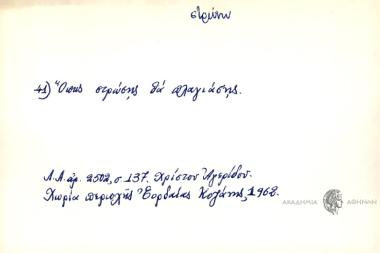 στρώνω
41) Ὅπως στρώσῃς θὰ πλαγιάσῃς.
Λ.Α. ἀρ. 2502, σ. 137. Χρίστου Ἀγερίδου.
Χωρία περιοχῆς Ἑορδαίας Κοζάνης, 1962.
ΑΚΑΔΗΜΙΑ ΑΘΗΝΩΝ